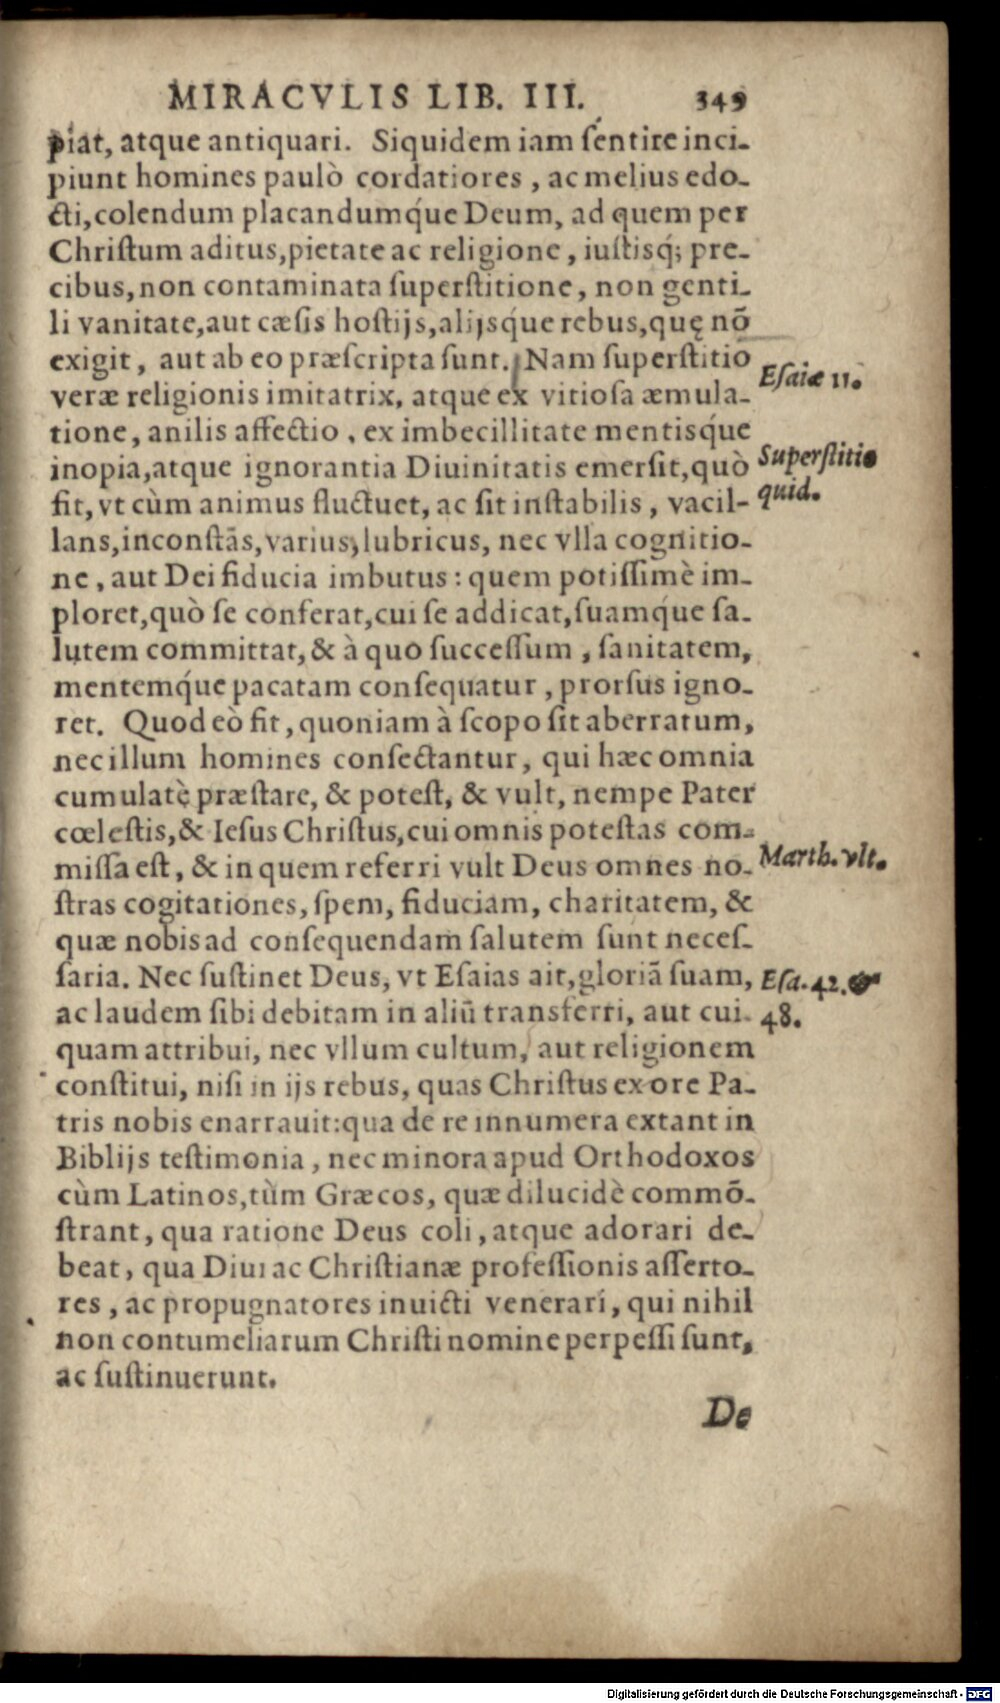 MIRACVLIS LIB. III. 349
piat, atque antiquari. Siquidem iam ſentire inci-
piunt homines paulò cordatiores, ac melius edo-
cti, colendum placandumq́ue Deum, ad quem per
Chriſtum aditus, pietate ac religione, iuſtisq́; pre-
cibus, non contaminata ſuperſtitione, non genti-
li vanitate, aut cæſis hoſtijs, alijsq́ue rebus, quę nō
exigit, aut ab eo præſcripta ſunt. Nam ſuperſtitio
Eſaiæ 11.
veræ religionis imitatrix, atque ex vitioſa æmula-
tione, anilis affectio, ex imbecillitate mentisq́ue
inopia, atque ignorantia Diuinitatis emerſit, quò
Superſtitio
fit, vt cùm animus fluctuet, ac ſit inſtabilis, vacil-
quid.
lans, inconſtãs, varius, lubricus, nec vlla cognitio-
ne, aut Dei fiducia imbutus: quem potiſſimè im-
ploret, quò ſe conferat, cui ſe addicat, ſuamq́ue ſa-
lutem committat, & à quo ſucceſſum, ſanitatem,
mentemq́ue pacatam conſequatur, prorſus igno-
ret. Quod eò fit, quoniam à ſcopo ſit aberratum,
nec illum homines conſectantur, qui hæc omnia
cumulatè præſtare, & poteſt, & vult, nempe Pater
cœleſtis, & Ieſus Chriſtus, cui omnis poteſtas com-
miſſa eſt, & in quem referri vult Deus omnes no-
Matth. vlt.
ſtras cogitationes, ſpem, fiduciam, charitatem, &
quæ nobis ad conſequendam ſalutem ſunt neceſ-
ſaria. Nec ſuſtinet Deus, vt Eſaias ait, gloriã ſuam,
Eſa. 42. &
ac laudem ſibi debitam in aliũ transferri, aut cui-
48.
quam attribui, nec vllum cultum, aut religionem
conſtitui, niſi in ijs rebus, quas Chriſtus ex ore Pa-
tris nobis enarrauit: qua de re innumera extant in
Biblijs teſtimonia, nec minora apud Orthodoxos
cùm Latinos, tùm Græcos, quæ dilucidè commõ-
ſtrant, qua ratione Deus coli, atque adorari de-
beat, qua Diui ac Chriſtianæ profeſſionis aſſerto-
res, ac propugnatores inuicti venerari, qui nihil
non contumeliarum Chriſti nomine perpeſſi ſunt,
ac ſuſtinuerunt.
De
Digitalisierung gefördert durch die Deutsche Forschungsgemeinschaft - DFG